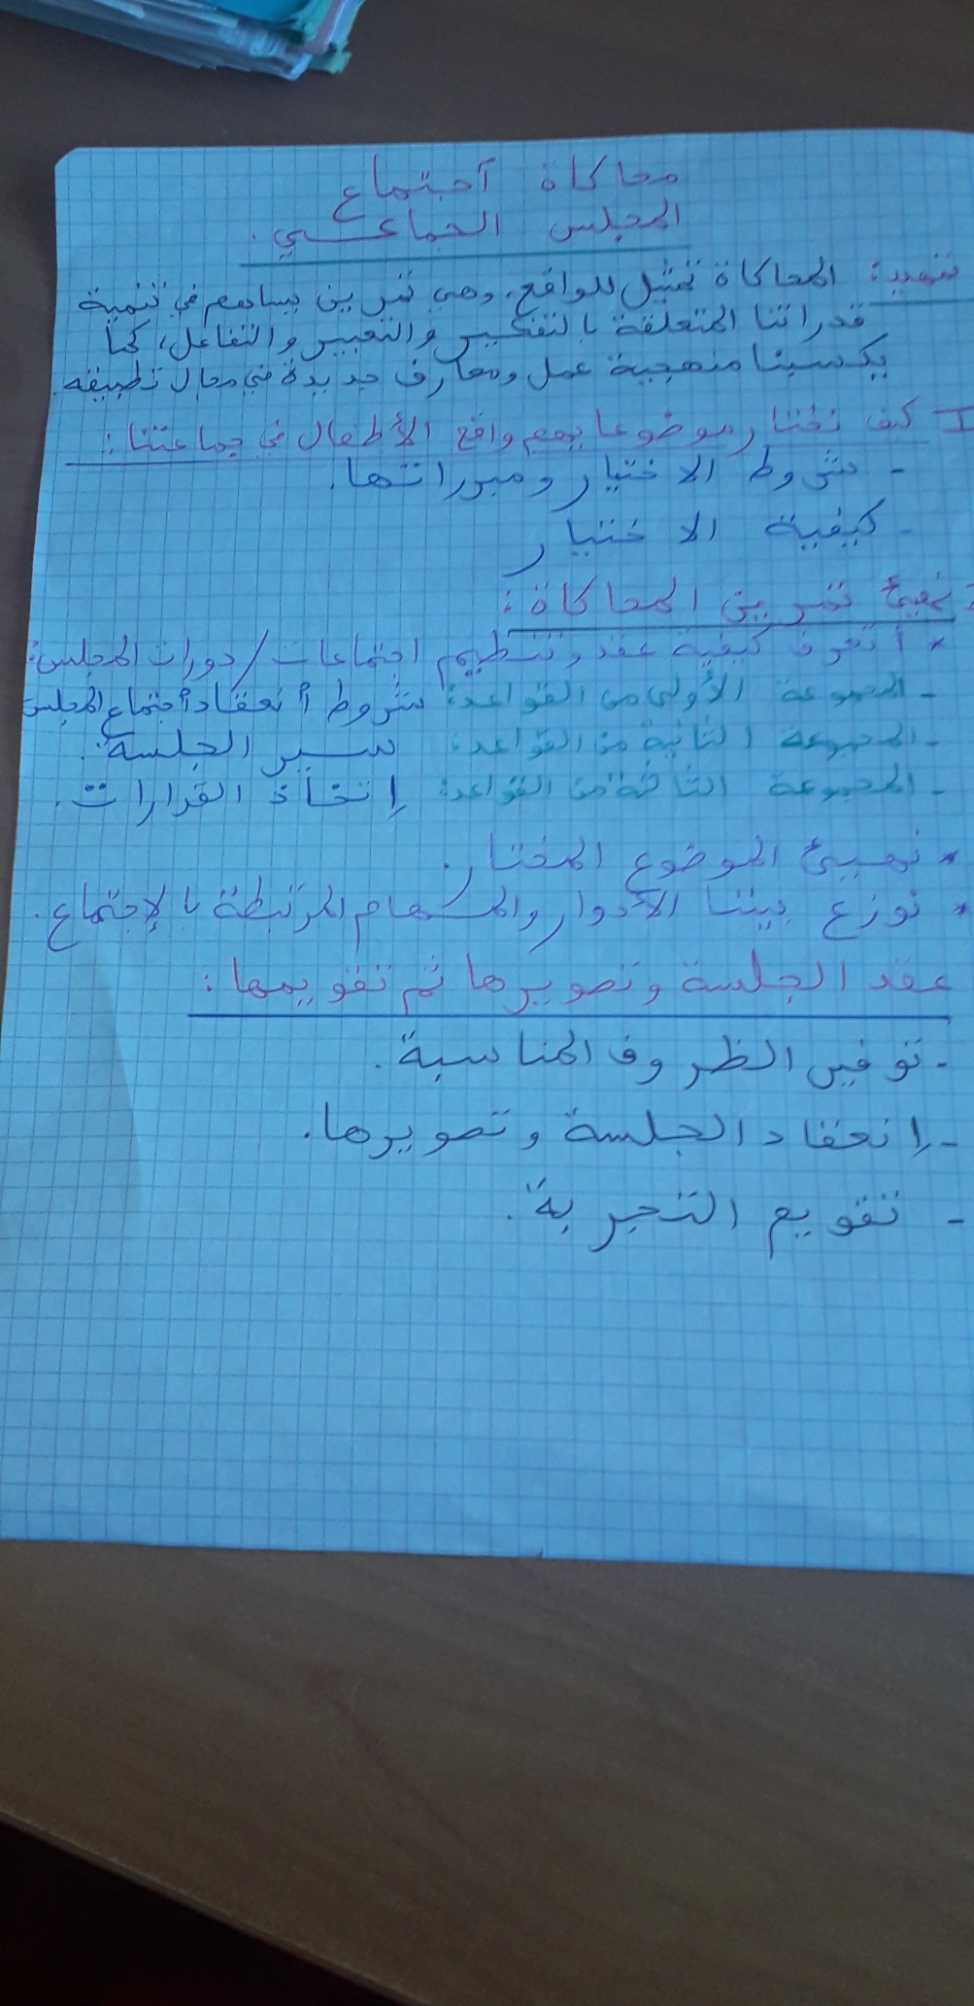 محاكاة آجتماع
المجلس الجماعي.
تمهيد: المحاكاة تمثيل للواقع، وهي تمرين يساهم في تنمية
قدراتنا المتعلقة بالتفكير والتعبير والتفاعل، كما
يكسبنا منهجية عمل ومعارف جديدة في مجال تطبيقه.
I كيف نختار موضوعا يهم واقع الأطفال في جماعتنا:
- شروط الاختيار ومبرراتها.
- كيفية الاختيار
نهيئ تمرين المحاكاة:
* أتعرف كيفية عقد وتنظيم اجتماعات/دورات المجلس:
- المجموعة الأولى من القواعد: شروط أنعقاد أجتماع المجلس
- المجموعة الثانية من القواعد: سير الجلسة.
- المجموعة الثالثة من القواعد: إتخاذ القرارات.
* نهيئ الموضوع المختار.
* نوزع بيننا الأدوار والمهام المرتبطة بالإجتماع.
عقد الجلسة وتصويرها ثم تقويمها:
- توفير الظروف المناسبة.
- إنعقاد الجلسة وتصويرها.
- تقويم التجربة.